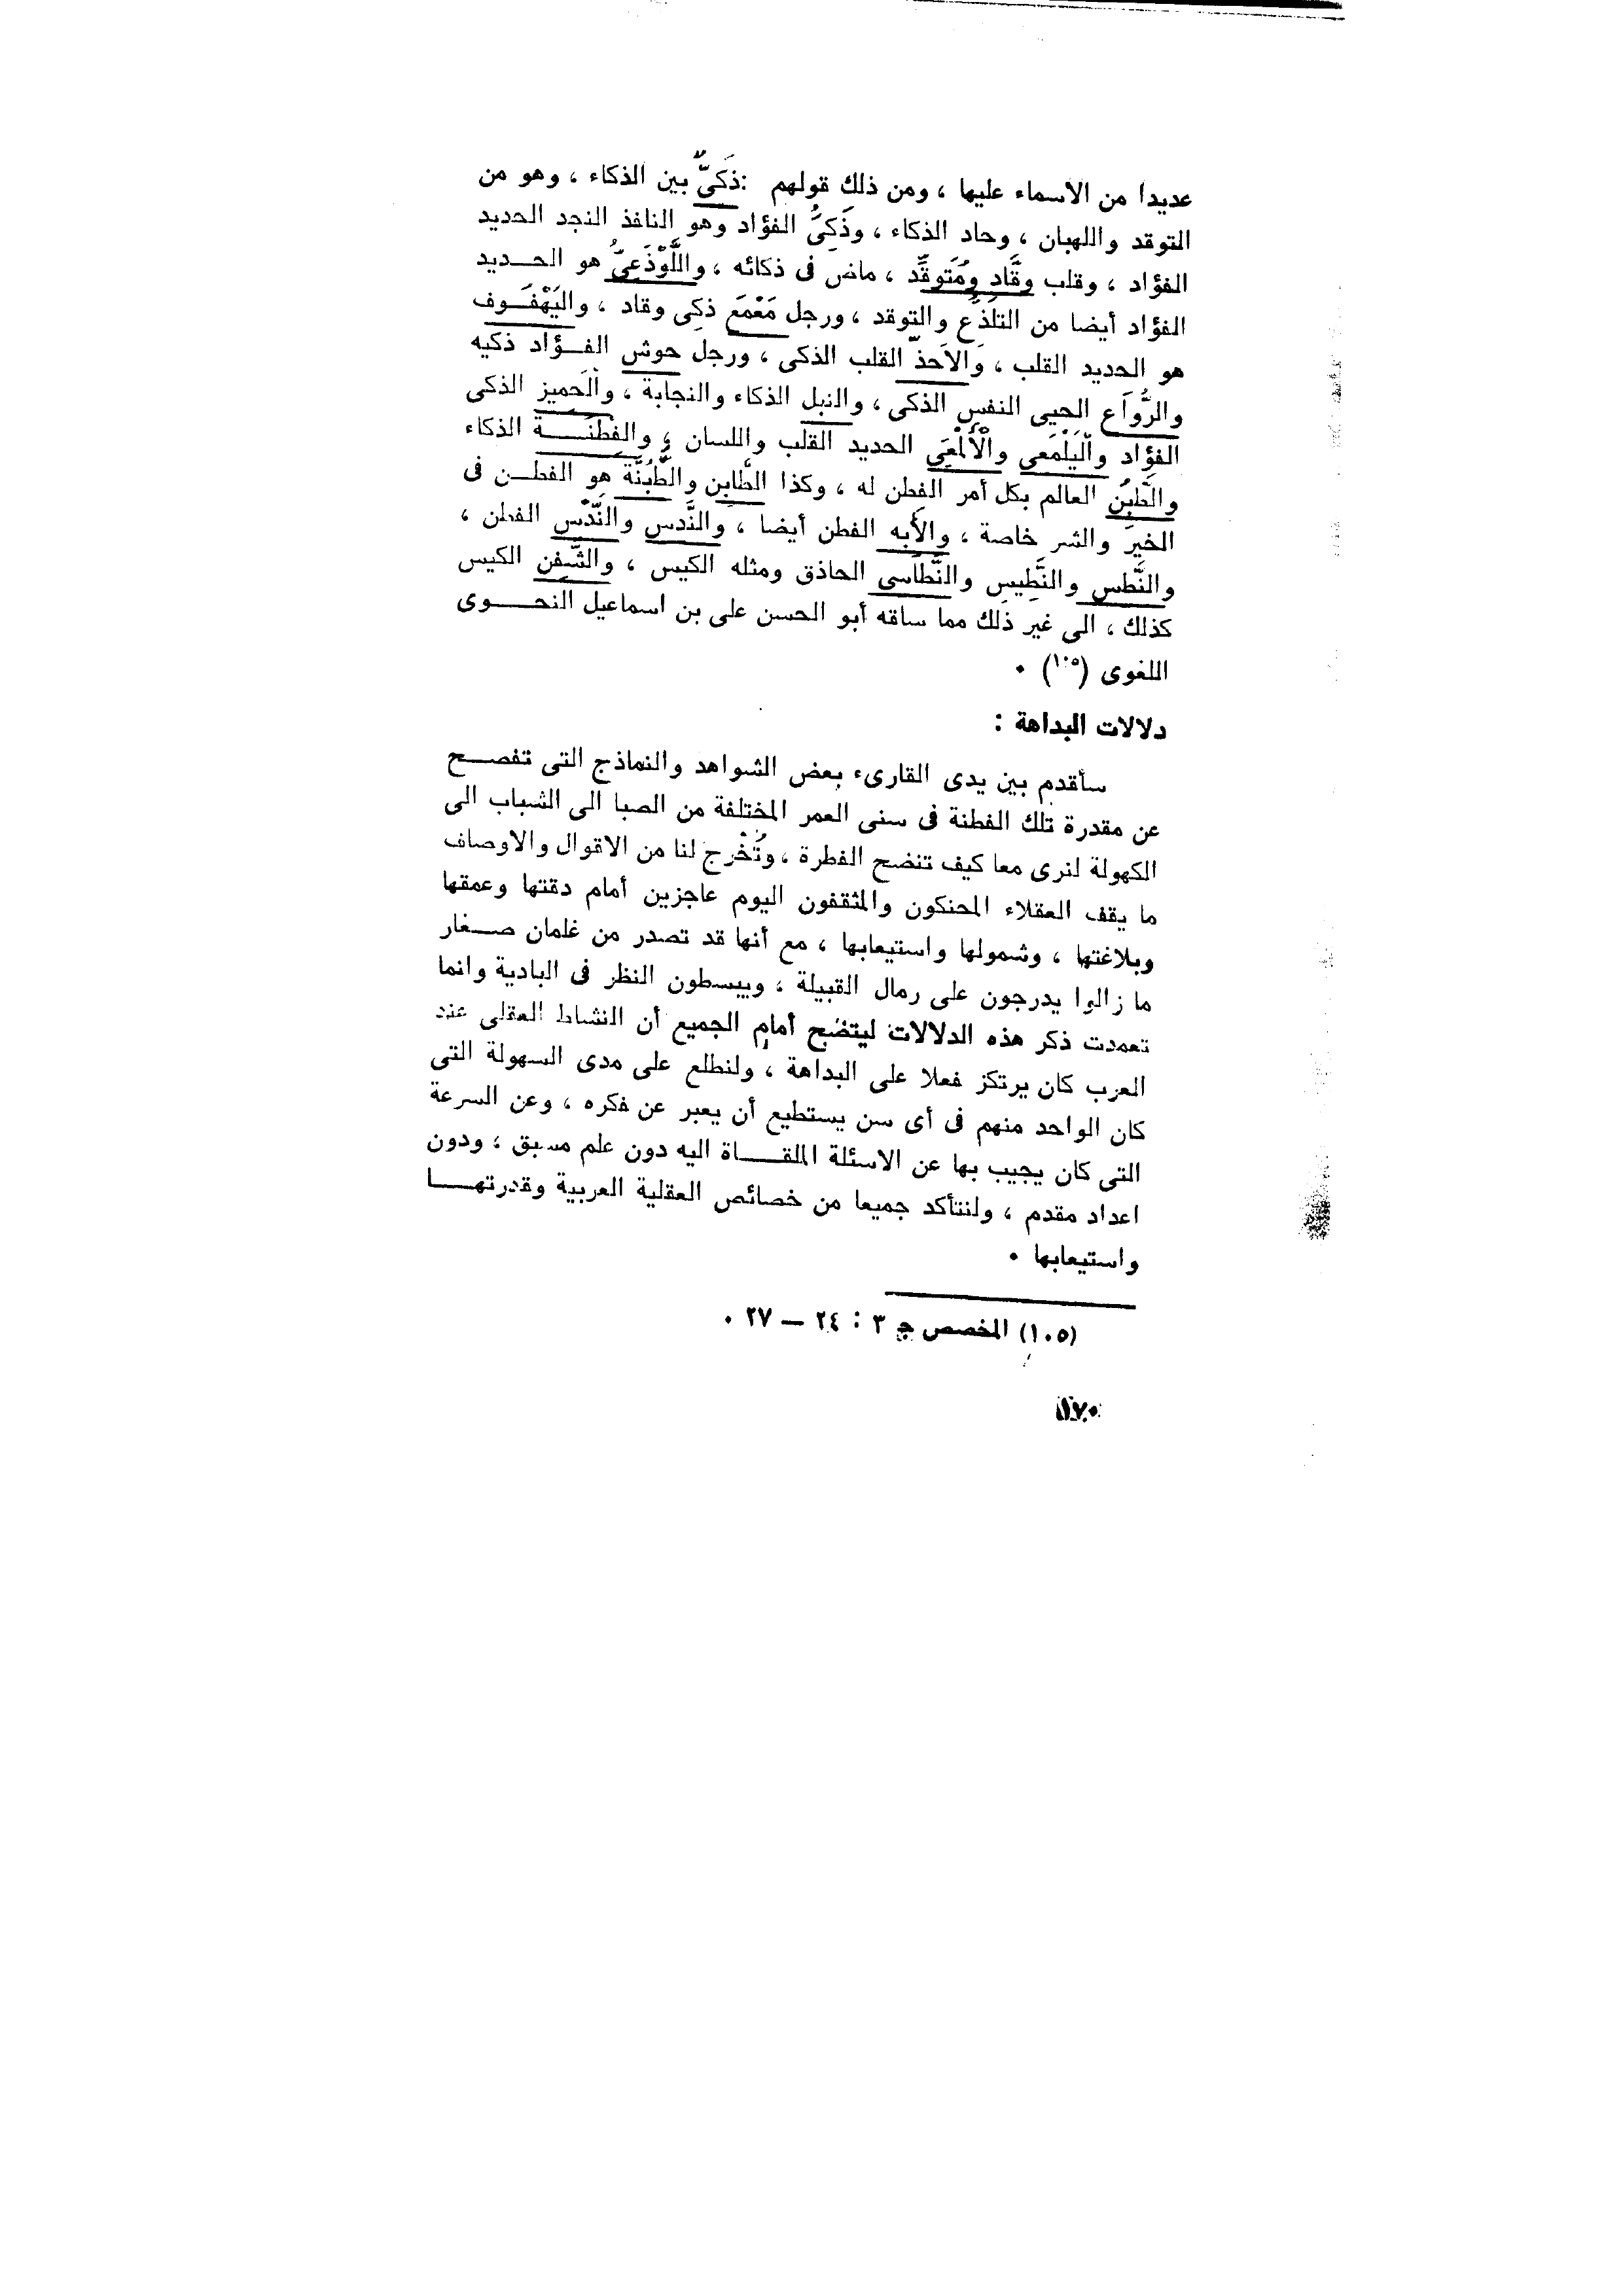 عديدا من الاسماء عليها ، ومن ذلك قولهم : ذَكىٌّ بين الذكاء ، وهو من
التوقد واللهبان ، وحاد الذكاء ، وذَكِىُّ الفؤاد وهو النافذ النجد الحديد
الفؤاد ، وقلب وقَّاد ومُتَوقِّد ، ماض فى ذكائه ، واللَّوْذَعِىُّ هو الحـــديد
الفؤاد أيضا من التلَذُّع والتوقد ، ورجل مَعْمَع ذكى وقاد ، واليَهْفَــوف
هو الحديد القلب ، والاَحذّ القلب الذكى ، ورجل حوش الفــؤاد ذكيه
والرُّوَاع الحيى النفس الذكى ، والنبل الذكاء والنجابة ، والَحميز الذكى
الفؤاد والْيَلْمَعى والْأَلْمَعِى الحديد القلب واللسان ، والفِطْنَــــة الذكاء
والطَّبِن العالم بكل أمر الفطن له ، وكذا الطَّابِن والطُّبُنَّة هو الفطــن فى
الخير والشر خاصة ، والأَبه الفطن أيضا ، والنَّدس والنَّدْس الفطن ،
والنَّطس والنَّطِيس والنَّطَاسى الحاذق ومثله الكيس ، والشَّفِن الكيس
كذلك ، الى غير ذلك مما ساقه أبو الحسن على بن اسماعيل النحــــوى
اللغوى (١٠٥) ٠
دلالات البداهة :
سأقدم بين يدى القارىء بعض الشواهد والنماذج التى تفصـــح
عن مقدرة تلك الفطنة فى سنى العمر المختلفة من الصبا الى الشباب الى
الكهولة لنرى معا كيف تنضح الفطرة ، وتُخْرج لنا من الاقوال والاوصاف
ما يقف العقلاء المحنكون والمثقفون اليوم عاجزين أمام دقتها وعمقها
وبلاغتها ، وشمولها واستيعابها ، مع أنها قد تصدر من غلمان صـــغار
ما زالوا يدرجون على رمال القبيلة ، ويبسطون النظر فى البادية وانما
تعمدت ذكر هذه الدلالات ليتضح أمام الجميع أن النشاط العقلى عند
العرب كان يرتكز فعلا على البداهة ، ولنطلع على مدى السهولة التى
كان الواحد منهم فى أى سن يستطيع أن يعبر عن فكره ، وعن السرعة
التى كان يجيب بها عن الاسئلة الملقـــــاة اليه دون علم مسبق ، ودون
اعداد مقدم ، ولنتأكد جميعا من خصائص العقلية العربية وقدرتهـــــا
واستيعابها ٠
(١٠٥) المخصص ج ٣ : ٢٤ — ٢٧ ٠
١٧٠